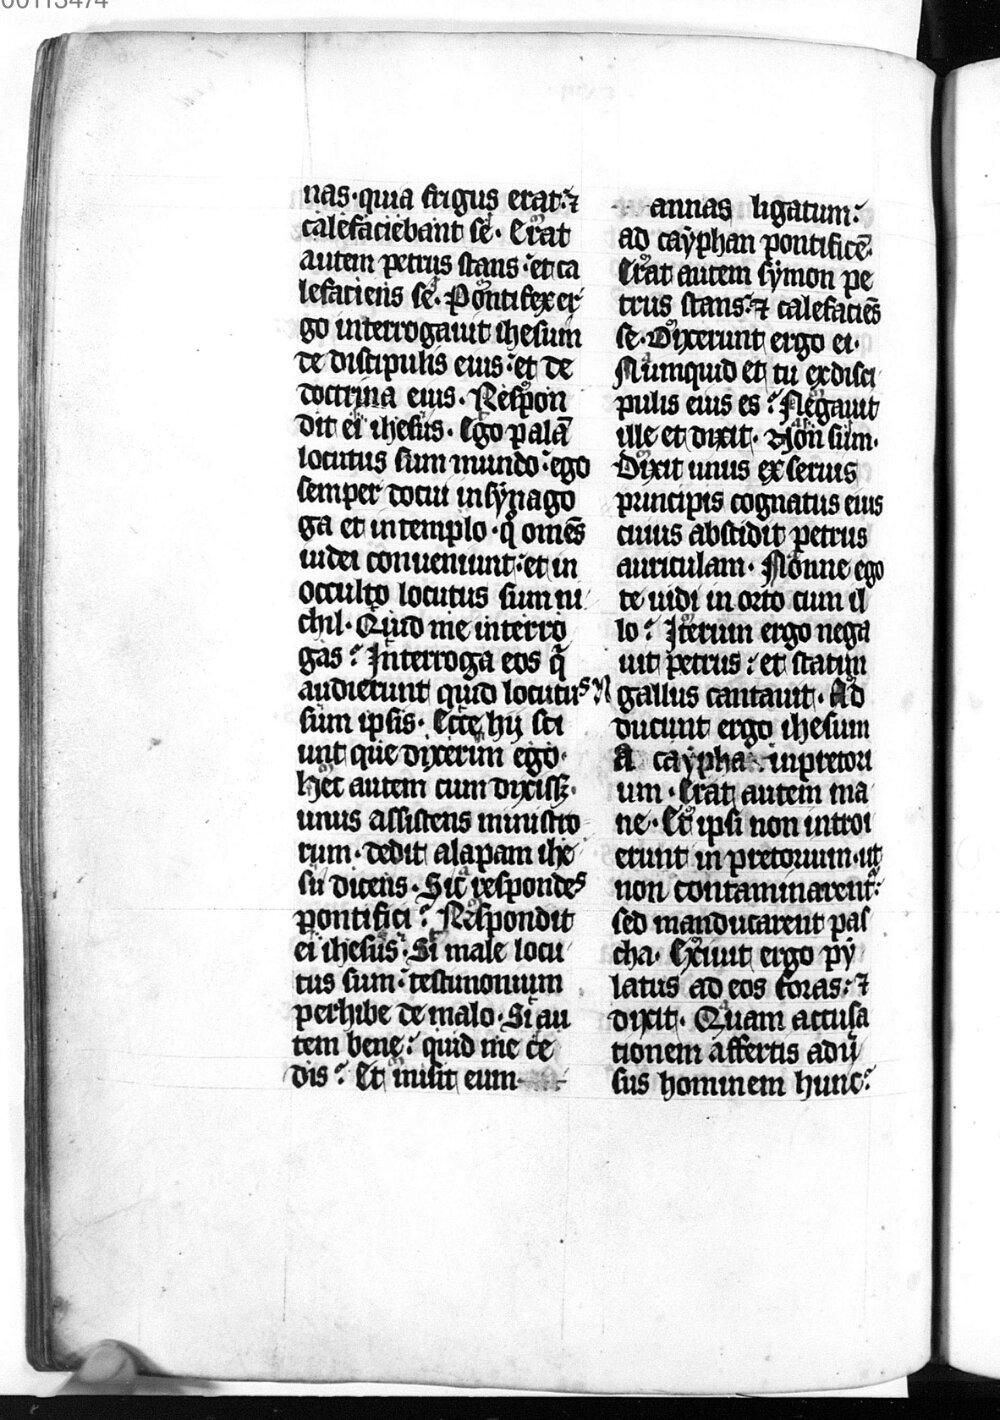 00113474
nas·quia frigus erat:⁊
calefaciebant se· Erat
autem petrus stans:et ca
lefaciens se· Pontifex er
go interrogauit ihesum
de discipulis eius:et de
doctrina eius· Respon
dit ei ihesus· Ego palā
locutus sum mundo:ego
semper docui in synago
ga et in templo·q̊ omēs
iudei conueniunt:et in
occulto locutus sum ni
chil· Quid me interro
gas? Interroga eos q̄
audierunt quid locutus
sum ipsis· Ecce hij sci
unt que dixerim ego·
Hec autem cum dixissꝫ·
unus assistens ministro
rum·dedit alapam ihe
su dicens· Sic respondes
pontifici? Respondit
ei ihesus· Si male locu
tus sum:testimonium
perhibe de malo· Si au
tem bene: quid me ce
dis? Et misit eum
annas ligatum:
ad cayphan pontificē·
Erat autem symon pe
trus stans:⁊ calefaciēs
se· Dixerunt ergo ei·
Numquid et tu ex disci
pulis eius es? Negauit
ille et dixit· Non sum·
Dixit unus ex seruis
principis cognatus eius
cuius abscidit petrus
auriculam· Nonne ego
te uidi in orto cum il
lo? Iterum ergo nega
uit petrus: et statim
gallus cantauit· Ad
ducunt ergo ihesum
A caypha in pretori
um· Erat autem ma
ne· Et ipsi non introi
erunt in pretorium·ut
non contaminarent̄:
sed manducarent pas
cha· Exiuit ergo py
latus ad eos foras:⁊
dixit· Quam accusa
tionem affertis adū
sus hominem hunc?